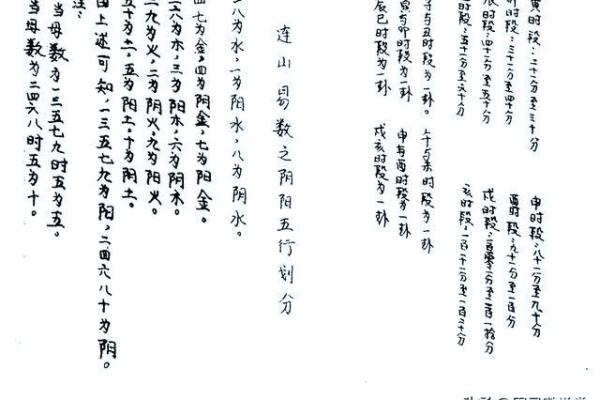 寅时段:二十一分至三十分
申时段:八十一分至九十分
卯时段:三十一分至四十分
酉时段:九十一分至一百分
时段:四十一分至五十分
戌时段:一百零一分至一百一拾分
时段:五十一分至六十分
亥时段:一百十一分至一百二十分
子与丑时段为一卦。
午与未时段为一卦
寅与卯时段为一卦
申与酉时段为一卦
辰巳时段为一卦
戌亥时段为一卦
连山易数之阴阳五行划分
八为水,一为阳水,八为阴水。
四七为金,四为阴金,七为阳金。
六为木,三为阳木,六为阴木。
二九为火,二为阴火,九为阳火。
五十为土,五为阳土,十为阴土。
由上述可知,一三五七九为阳,二四六八十为阴。
注:
当母数为一三五七九时五为五。
当母数为二四六八时五为十。